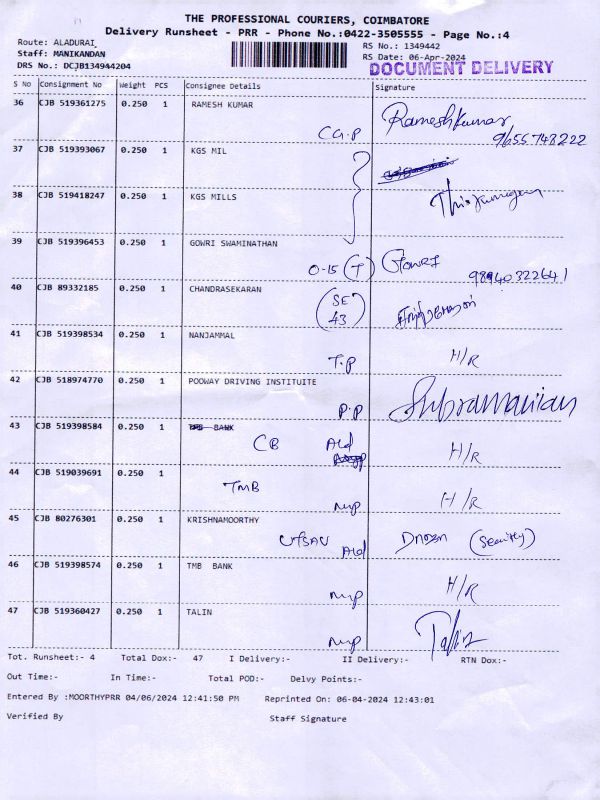 THE PROFESSIONAL COURIERS, COIMBATORE
Delivery Runsheet - PRR - Phone No.:0422-3505555 - Page No.:4
Route: ALADURAI RS No.: 1349442
Staff: MANIKANDAN RS Date: 06-Apr-2024
DRS No.: DCJB134944204 DOCUMENT DELIVERY
S No Consignment No Weight PCS Consignee Details Signature
36 CJB 519361275 0.250 1 RAMESH KUMAR Rameshkumar
9655748222
37 CJB 519393067 0.250 1 KGS MIL
38 CJB 519418247 0.250 1 KGS MILLS
39 CJB 519396453 0.250 1 GOWRI SWAMINATHAN
0-15 (T) GOWRI 98940322641
40 CJB 89332185 0.250 1 CHANDRASEKARAN
(SE 43)
41 CJB 519398534 0.250 1 NANJAMMAL
T.P H/R
42 CJB 518974770 0.250 1 POOWAY DRIVING INSTITUITE
P.P Subramanian
43 CJB 519398584 0.250 1 BANK
CB Ald H/R
44 CJB 519039691 0.250 1
TMB H/R
45 CJB 80276301 0.250 1 KRISHNAMOORTHY
Ald (Security)
46 CJB 519398574 0.250 1 TMB BANK
H/R
47 CJB 519360427 0.250 1 TALIN
Talin
Tot. Runsheet:- 4 Total Dox:- 47 I Delivery:- II Delivery:- RTN Dox:-
Out Time:- In Time:- Total POD:- Delvy Points:-
Entered By :MOORTHYPRR 04/06/2024 12:41:50 PM Reprinted On: 06-04-2024 12:43:01
Verified By Staff Signature